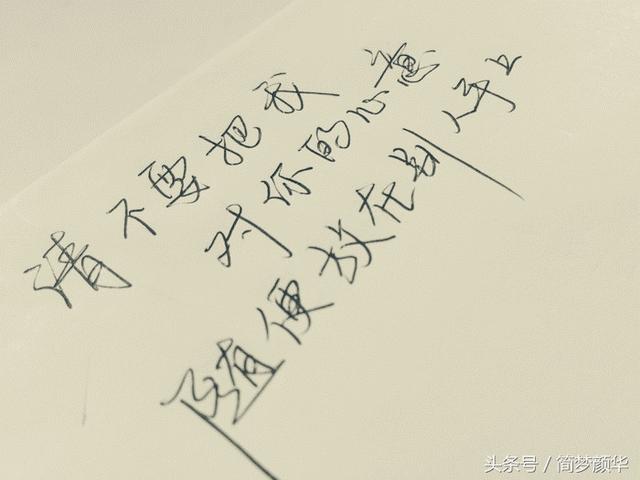 请不要把我
对你的心意
随便放在别人手上
头条号／简梦颜华